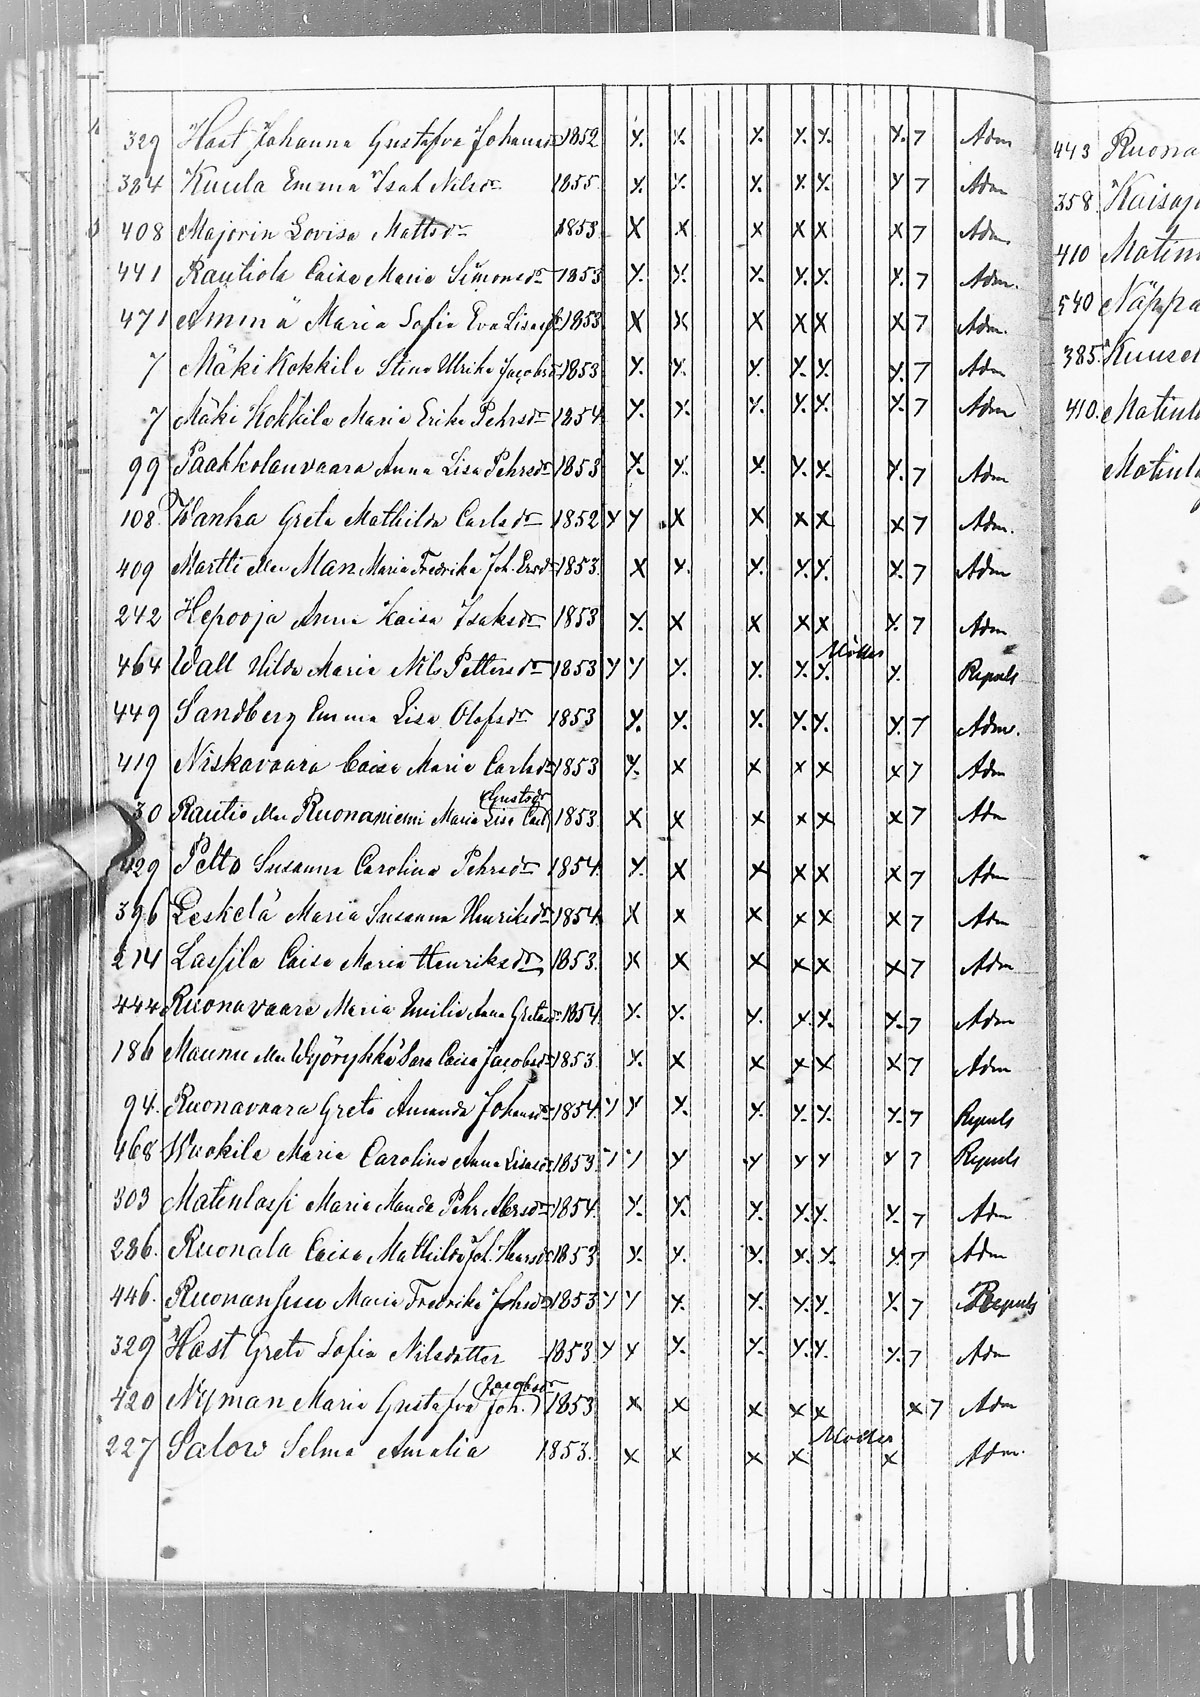 329 Hast Johanna Gustafva Johansdr 1852 X. X. X. X. X. X. 7 Adm
384 Kuula Emma Isak Nilsdr 1855 X. X. X. X. X. X 7 Adm
408 Majorin Lovisa Mattsdr 1853 X X X X X X 7 Adm
441 Rautiola Caisa Maria Simonsdr 1853 X. X. X. X. X. X. 7 Adm.
471 Ämmä Maria Sofia Eva Lisa 1853 X X X X X X 7 Adm.
7 Mäki Kokkila Stina Ulrika Jacobsdr 1853 X. X. X. X. X. X. 7 Adm
7 Mäki Kokkila Maria Erika Pehrsdr 1854 X. X. X. X. X. X. 7 Adm
99 Paakkolanvaara Anna Lisa Pehrsdr 1853 X. X. X. X. X. X. 7 Adm
108 Wanha Greta Mathilda Carlsdr 1852 Y Y X X X X X 7 Adm.
409 Martti Man Maria Fredrika Joh. Ersdr 1853. X X. X. X. X. X. 7 Adm
242 Hepooja Anna Kaisa Isaksdr 1853 X. X X X X X. 7 Adm
464 Wall Hilda Maria Nils Pettersdr 1853 Y Y X. X. X. X. X. Repuls
449 Sandberg Emma Lisa Olofsdr 1853 X. X. X. X. X. X. 7 Adm.
419 Niskavaara Caisa Maria Carlsdr 1853 X. X X X X X 7 Adm
Gustsdr
30 Rautio Ruonaniemi Maria Lisa Carl) 1853 X X X X X X 7 Adm
429 Pelto Susanna Carolina Pehrsdr 1854. X. X X X X X 7 Adm
396 Leskelä Maria Susanna Henriksdr 1854. X X X X X X 7 Adm
214 Lassila Caisa Maria Henriksdr 1853. X X X X X X 7 Adm
444 Ruonavaara Maria Emilia Anna Gretasdr 1854. X. X. X. X. X. X. 7 Adm
186 Maunu Wyörykkä Sara Caisa Jacobsdr 1853. X. X X X X X 7 Adm
94. Ruonavaara Greta Amanda Johansdr 1854. Y Y X. X. X. X. X. 7 Repuls
468 Wuokila Maria Carolina Anna Lisasdr 1853 Y Y Y Y Y Y Y 7 Repuls
303 Matinlassi Maria Manda Pehr Abrsdr 1854. X. X. X. X. X. X. 7 Adm
286. Ruonala Caisa Mathilda Joh. 1853. X. X. X. X. X. X. 7 Adm
446. Ruonansuu Maria Fredrika Johsdr 1853 Y Y X. X. X. X. X. 7 Repuls
329 Hast Greta Sofia Nilsdotter 1853. Y Y X. X. X. X. X. 7 Adm
Jacobsdr
420 Nyman Maria Gustafva Joh.) 1853 X X X X X X 7 Adm
227 Salow Selma Amalia 1853. X X X X X Adm.
443 Ruona
358.
410
540 Näppä
385.
410. Matinl
Matinl